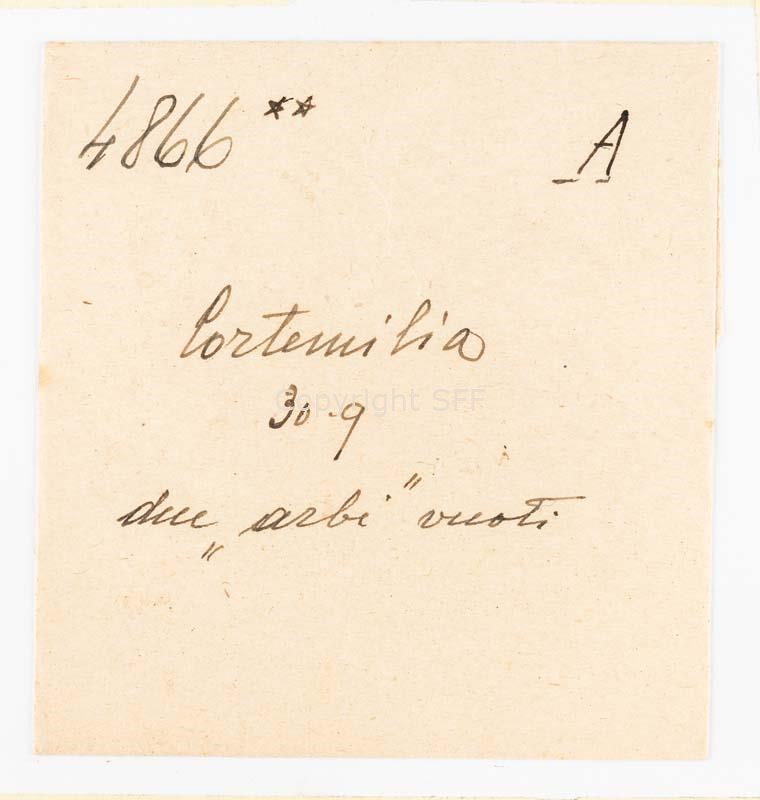 4866 ** A
Cortemilia
30-9
Copyright SFF
due „arbi" vuoti